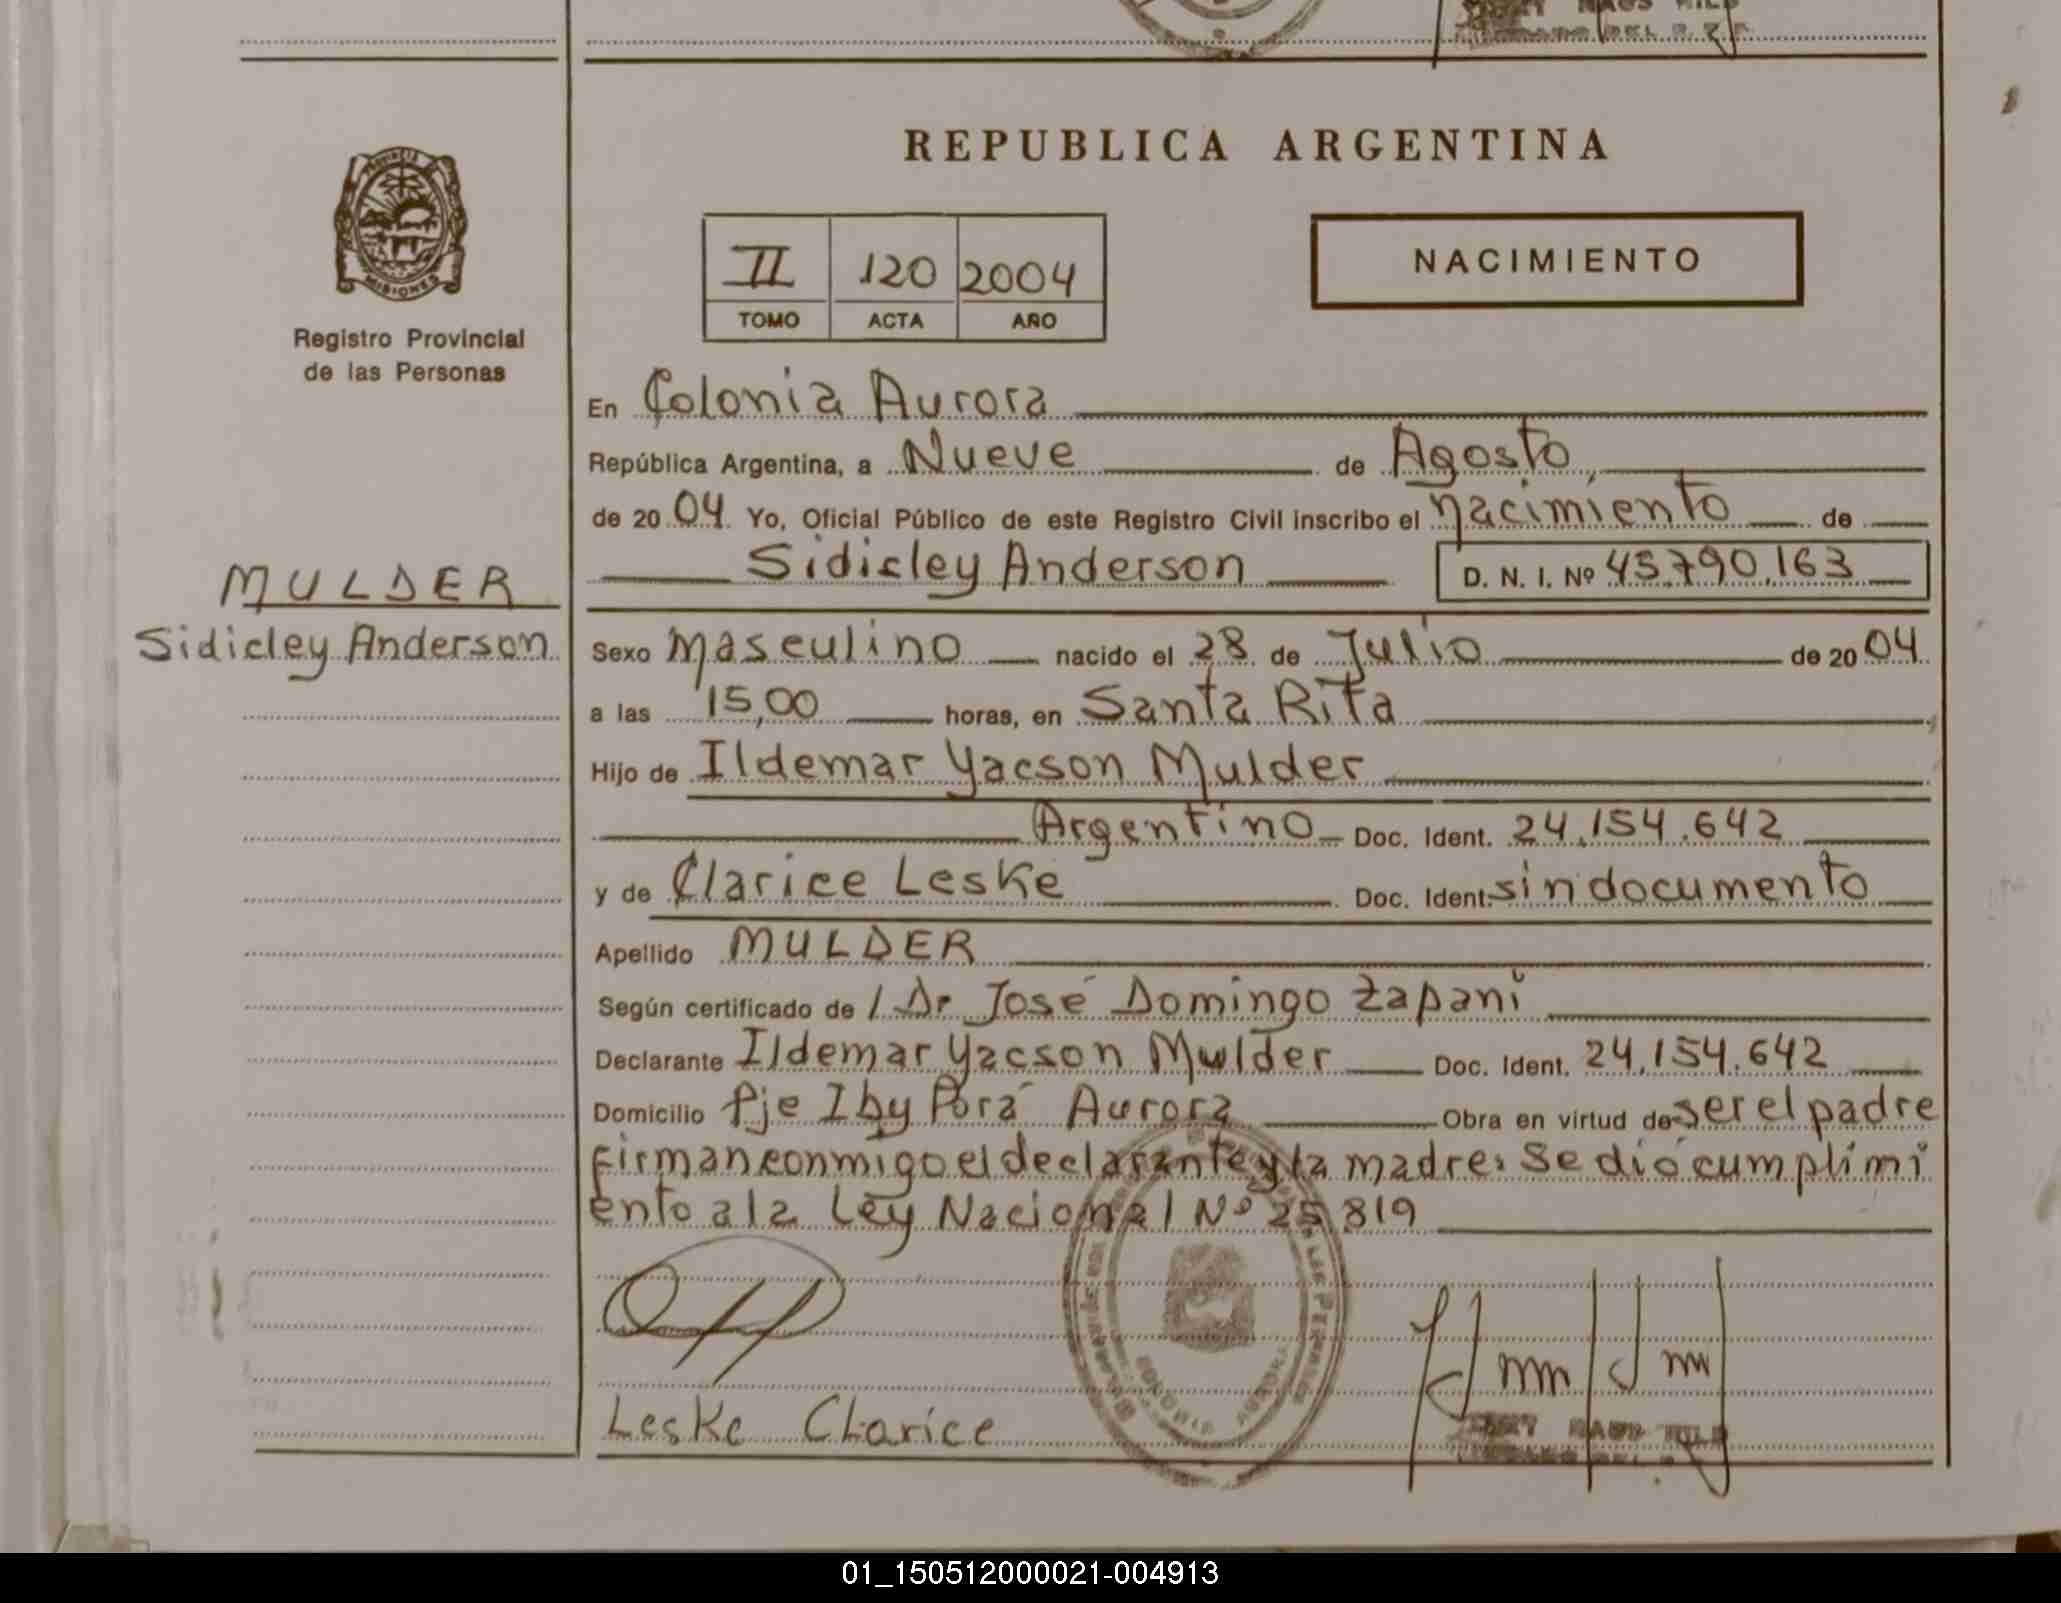 REPUBLICA ARGENTINA
PROVINCIA
MISIONES
Registro Provincial
de las Personas
NACIMIENTO
II 120 2004
TOMO ACTA AÑO
En Colonia Aurora
República Argentina, a Nueve de Agosto
de 20 04 Yo, Oficial Público de este Registro Civil inscribo el nacimiento de
Sidicley Anderson D. N. I. Nº 45.790.163
MULDER
Sidicley Anderson
Sexo Masculino nacido el 28 de Julio de 20 04
a las 15,00 horas, en Santa Rita
Hijo de Ildemar Yacson Mulder
Argentino Doc. Ident. 24.154.642
y de Clarice Leske Doc. Ident. sin documento
Apellido MULDER
Según certificado de / Dr José Domingo Zapani
Declarante Ildemar Yacson Mulder Doc. Ident. 24.154.642
Domicilio Pje Iby Porá Aurora Obra en virtud de ser el padre
firman conmigo el declarante y la madre. Se dió cumplimi
ento a la Ley Nacional Nº 25.819
COLONIA AURORA
Leske Clarice
01_150512000021-004913